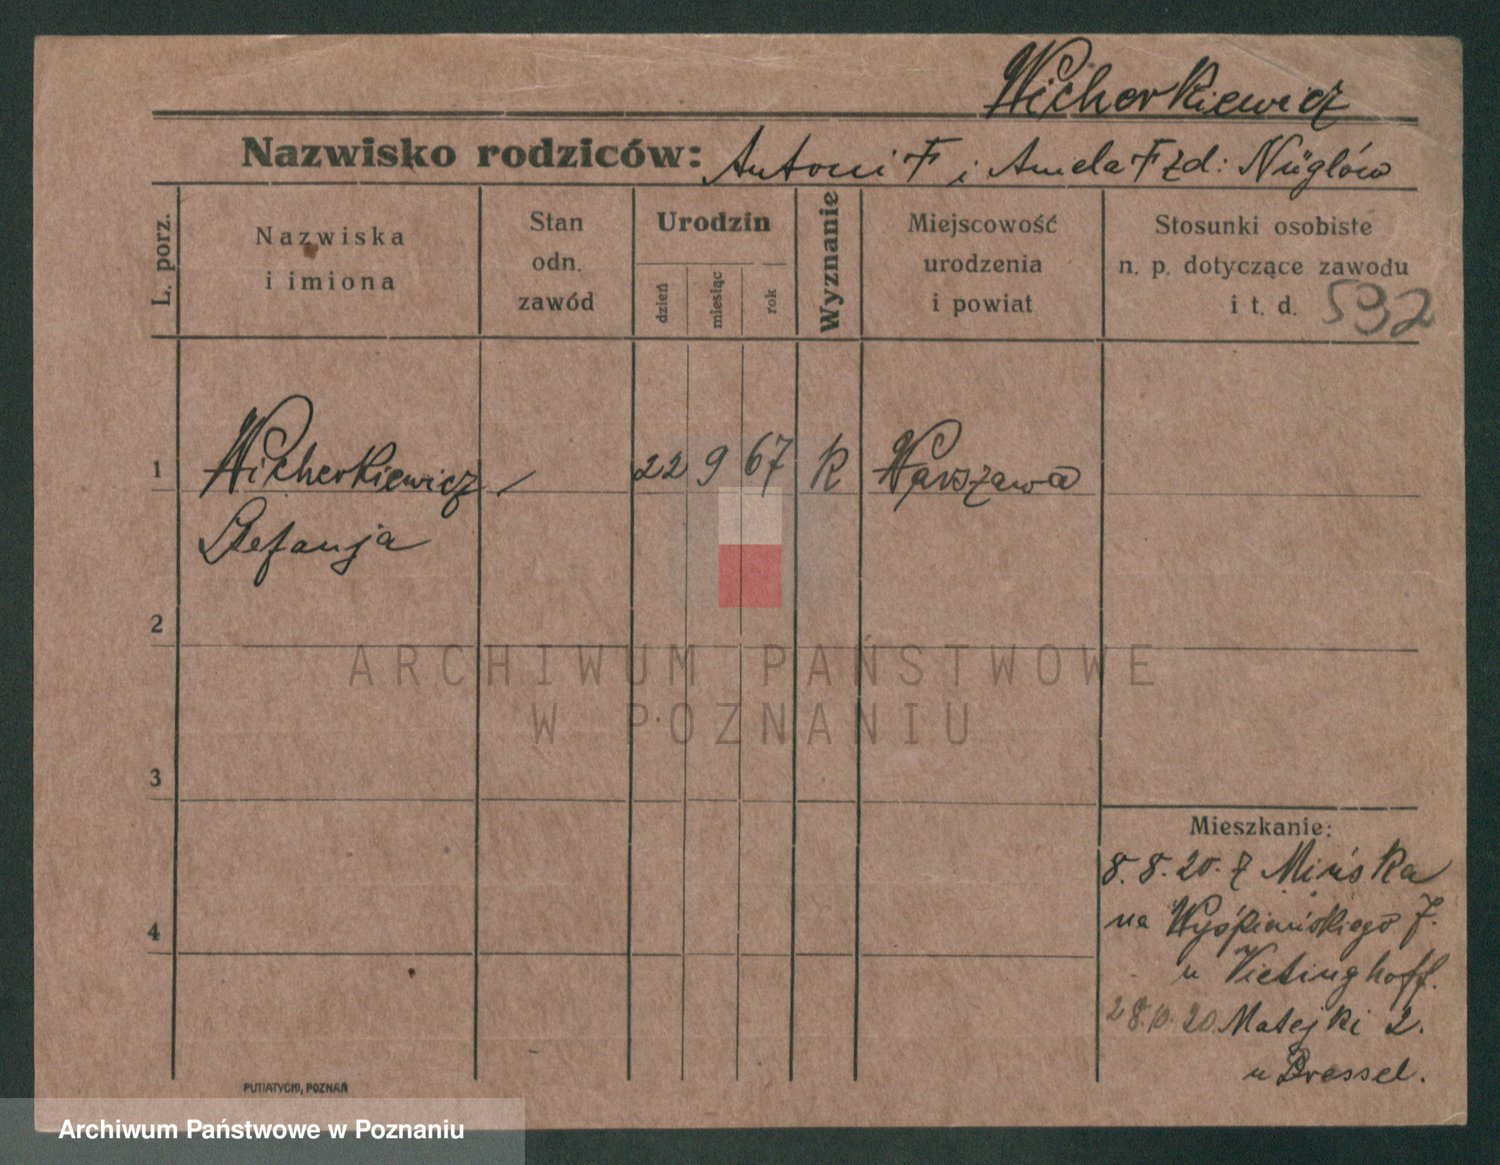 Wicherkiewicz
Nazwisko rodziców: Antoni F i Amela F zd: Nüglów
L. porz.
Nazwiska
i imiona
Stan
odn.
zawód
Urodzin
dzień
miesiąc
rok
Wyznanie
Miejscowość
urodzenia
i powiat
Stosunki osobiste
n. p. dotyczące zawodu
i t. d. 592
1 Wicherkiewicz / 22 9 67 R Warszawa
Stefanja
2
3
4
Mieszkanie:
8.8.20. z Mińska
na Wyśpiańskiego 7.
u Vietinghoff.
28.10.20. Matejki 2.
u Dressel.
PUTIATYCKI, POZNAŃ
ARCHIWUM PAŃSTWOWE
W POZNANIU
Archiwum Państwowe w Poznaniu